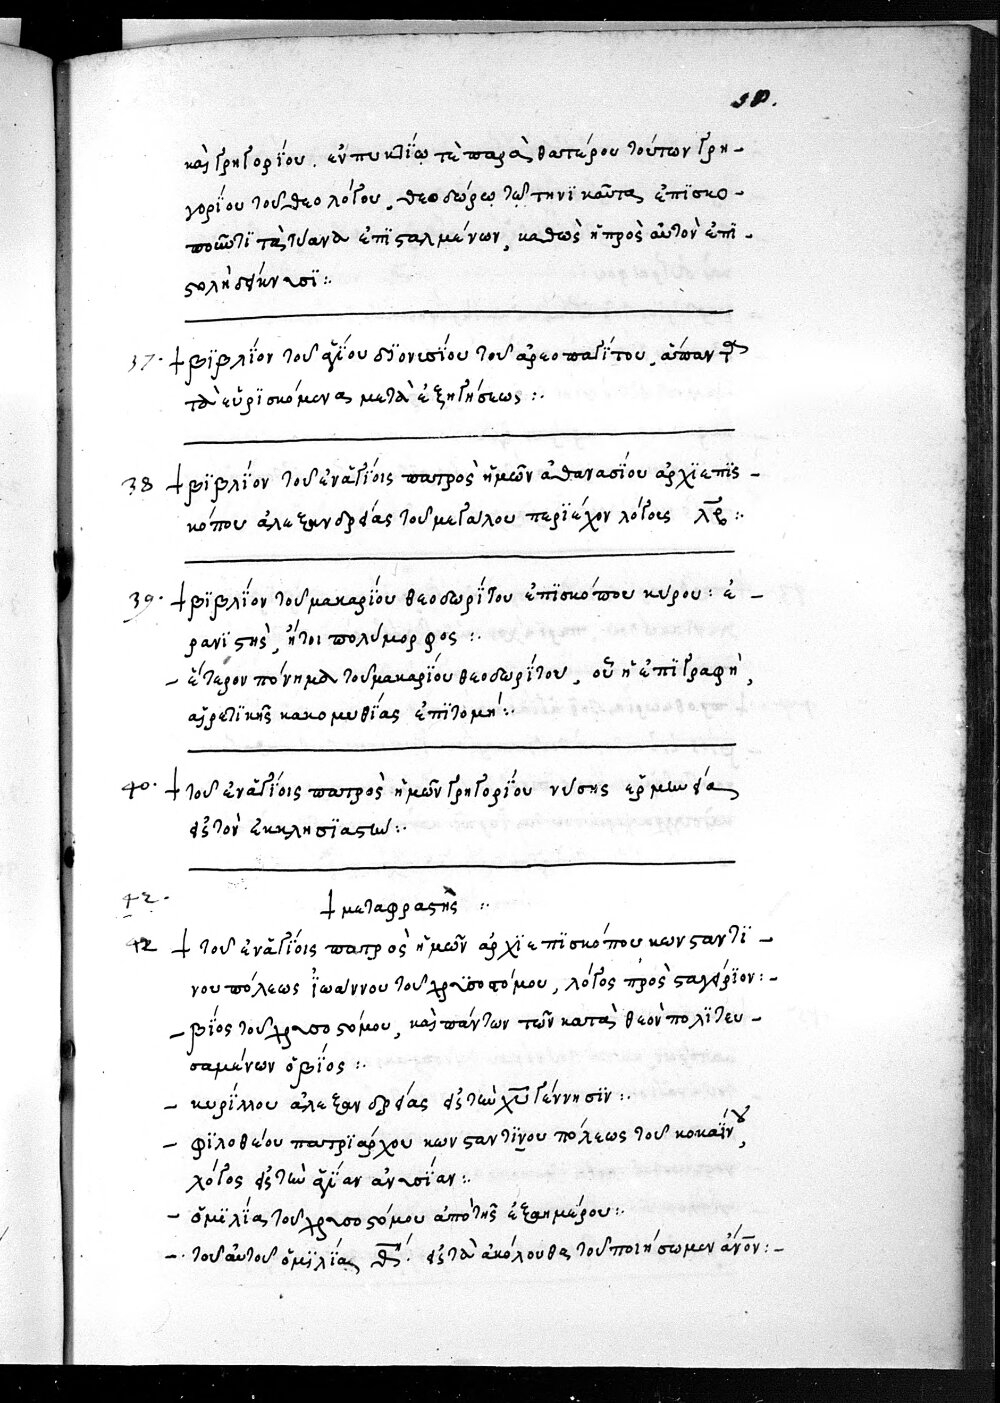 καὶ γρηγορΐου. ἐν πυκτΐω τὲ παρὰ θατέρου τούτων γρη-
γορΐου τοῦ θεολόγου, θεοδώρω τῶ τηνϊκαῦτα ἐπϊσκο-
ποῦντι τὰ τύανα ἐπϊσταλμένων, καθὼς ἡ πρὸς αὐτὸν ἐπϊ-
στολὴ δείκνυσϊ:
37. βϊβλΐον τοῦ ἁγΐου δϊονυσΐου τοῦ ἀρεοπαγΐτου, ἅπαντα
τὰ εὑρϊσκόμενα μετὰ ἐξηγήσεως:
38 βϊβλΐον τοῦ ἐν ἁγΐοις πατρὸς ἡμῶν ἀθανασΐου ἀρχϊεπϊσ-
κόπου ἀλεξανδρείας τοῦ μεγάλου περϊέχον λόγους
39. βϊβλΐον τοῦ μακαρΐου θεοδωρΐτου ἐπϊσκόπου κύρου: ἐ-
ρανϊστὴς, ἤτοι πολύμορφος:
- ἕτερον πόνημα τοῦ μακαρΐου θεοδωρΐτου, οὗ ἡ ἐπϊγραφὴ,
αἱρετϊκῆς κακομυθΐας ἐπϊτομή:
40. τοῦ ἐν ἁγΐοις πατρὸς ἡμῶν γρηγορΐου νύσης ἑρμηνεία
εἰς τὸν ἐκκλησϊαστὴν:
42.
μεταφραστὴς:
42 τοῦ ἐν ἁγΐοις πατρὸς ἡμῶν ἀρχϊεπϊσκόπου κωνσταντϊ-
νουπόλεως ἰωάννου τοῦ χρυσοστόμου, λόγος πρὸς σταγείρϊον:-
- βΐος τοῦ χρυσοστόμου, καὶ πάντων τῶν κατὰ θεὸν πολϊτευ-
σαμένων ὁ βΐος:
- κυρΐλλου ἀλεξανδρείας εἰς τὴν χῦ γέννησϊν:
- φϊλοθέου πατρϊάρχου κωνσταντϊνουπόλεως τοῦ κοκκΐνου,
λόγος εἰς τὴν ἁγΐαν ἀνασΐαν:
- ὁμϊλΐας τοῦ χρυσοστόμου ἀπὸ τῆς ἑξαημέρου:
- τοῦ αὐτοῦ ὁμϊλΐας εἰς τὰ ἀκόλουθα τοῦ ποιήσωμεν ἄνον:-